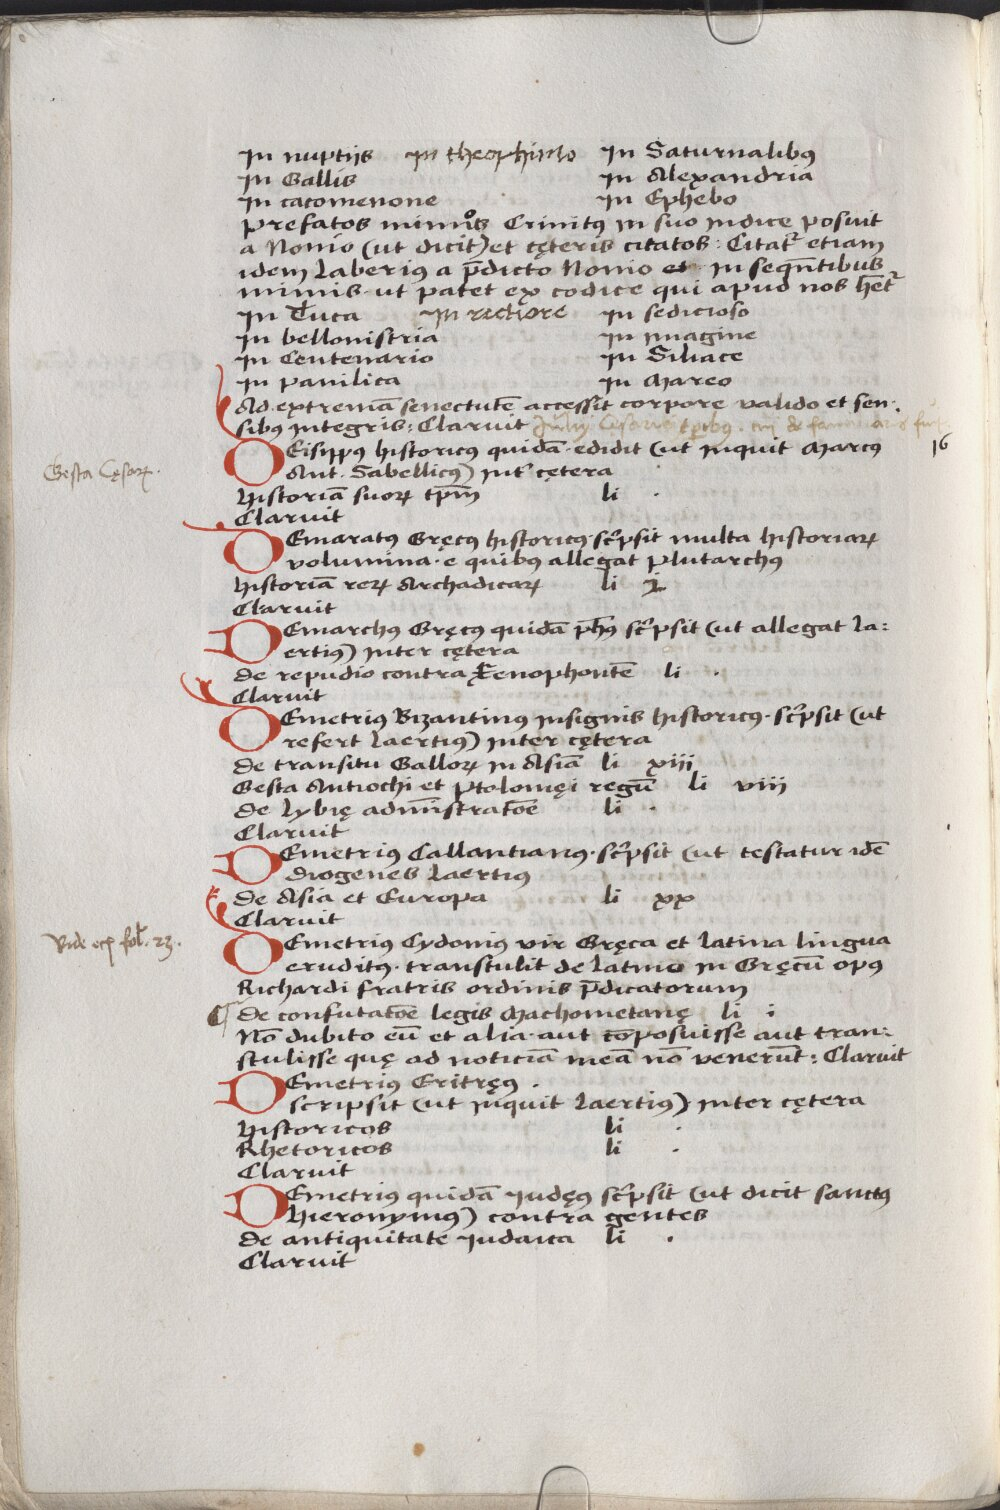 In nuptijs In theophinlo In Saturnalibꝰ
In Gallis In Alexandria
In catomenone In Ephebo
Prefatos mimos Crinitꝰ in suo indice posuit
a Nonio (ut dicit) et cęteris citatos: Citatr etiam
idem Laberiꝰ a p̄dicto Nonio et in seqn̄tibus
mimis ut patet ex codice qui apud nos hēt
In Tuca In rectiore In sedicioso
In bellonistria In Imagine
In Centenario In Siliace
In panilica In Marco
Ad extremā senectutē accessit corpore valido et sen-
sibꝰ integris: Claruit Julij Cesaris tꝑibꝰ. cui &
Gesta Cęsarꝝ.
DEisippꝰ historicꝰ quidā edidit (ut inquit Marcꝰ 16
Ant. Sabellicꝰ) intr cętera
Historiā suorꝝ tp̄m li .
Claruit
DEmaratꝰ Gręcꝰ historicꝰ sc̓psit multa historiarꝝ
volumina e quibꝰ allegat Plutarchꝰ
Historiā rerꝝ Archadicarꝝ li 2
Claruit
DEmarchꝰ Gręcꝰ quidā ph̄ꝰ sc̓psit (ut allegat La-
ertiꝰ) inter cętera
de repudio contra Xenophontē li .
Claruit
DEmetriꝰ Bizantinꝰ insignis historicꝰ sc̓psit (ut
refert Laertiꝰ) inter cętera
de transitu Gallorꝝ in Asiā li xiij
Gesta Antiochi et Ptolomęi regū li viij
de Lybię admīstratōe li .
Claruit
DEmetriꝰ Callantianꝰ sc̓psit (ut testatur idē
diogenes Laertiꝰ
de Asia et Europa li xx
Claruit
Vide ecī fol. 23.
DEmetriꝰ Cydoniꝰ vir Gręca et latina lingua
eruditꝰ transtulit de latino in Gręcū opꝰ
Richardi fratris ordinis p̄dicatorum
de confutatōe legis Machometanę li i
Nō dubito eū et alia aut cōposuisse aut tran-
stulisse quę ad noticiā meā nō venerūt: Claruit
DEmetriꝰ Eritręꝰ .
scripsit (ut inquit Laertiꝰ) inter cętera
Historicos li .
Rhetoricos li .
Claruit
DEmetriꝰ quidā Iudęꝰ sc̓psit (ut dicit sanctꝰ
Hieronymꝰ) contra gentes
de antiquitate Iudaica li .
Claruit